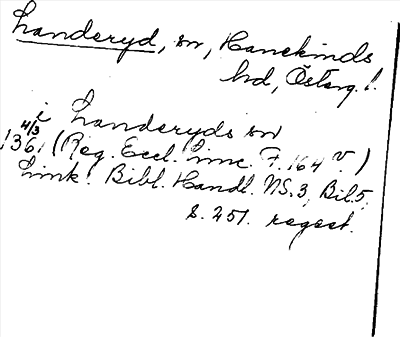 Landeryd, sn, Hanekinds
hd, Östergl.
i Landeryds sn
4/3
1361 (Reg. Eccl. Linc. F. 164 v.)
Link. Bibl. Handl. NS. 3, Bil. 5,
s. 251. regest.